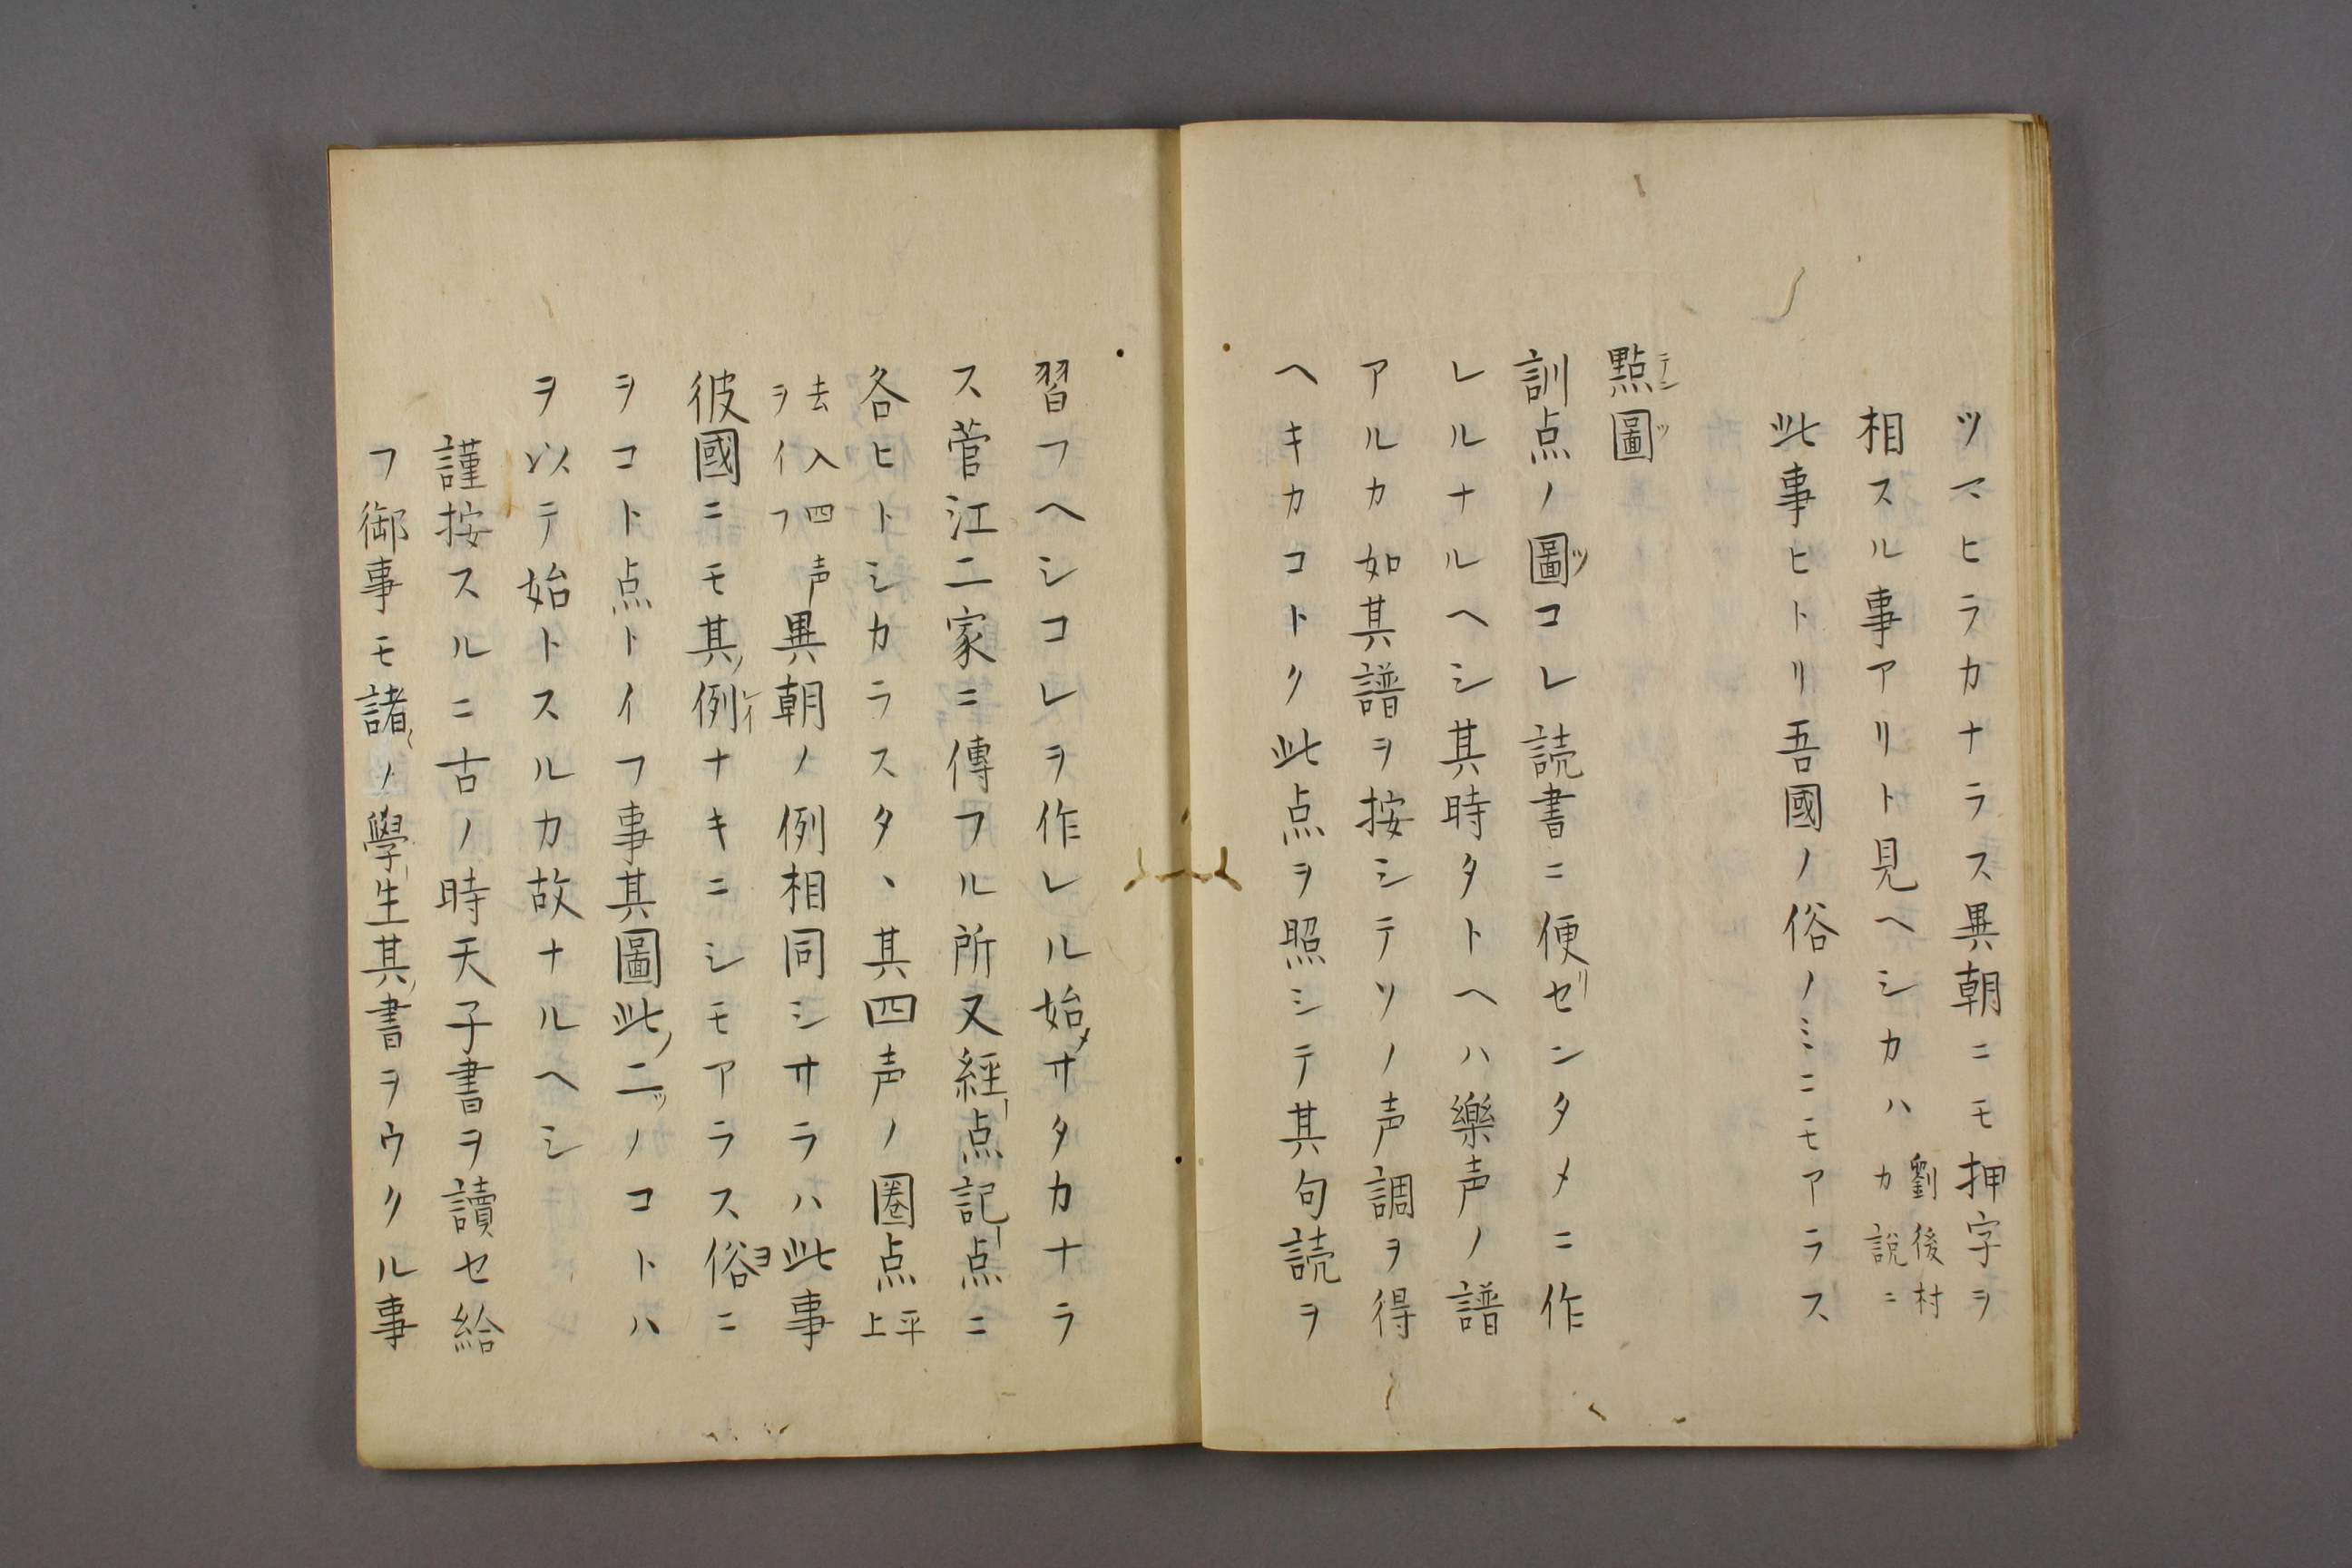 ツマヒラカナラス異朝ニモ押字ヲ
相スル事アリト見ヘシカハ劉後村カ説ニ
此事ヒトリ吾國ノ俗ノミニモアラス
點圖テンツ
訓点ノ圖ツコレ読書ニ便リゼンタメニ作
レルナルヘシ其時タトヘハ樂声ノ譜
アルカ如其譜ヲ按シテソノ声調ヲ得
ヘキカコトク此点ヲ照シテ其句読ヲ
習フヘシコレヲ作レル始メサタカナラ
ス菅江二家ニ傳フル所又経点記点ニ
各ヒトシカラスタヽ其四声ノ圏点平上
去入四声ヲイフ異朝ノ例相同シサラハ此事
彼國ニモ其ノ例レイナキニシモアラス俗ヨニ
ヲコト点トイフ事其圖此ノ二ツノコトハ
ヲ以テ始トスルカ故ナルヘシ
謹按スルニ古ノ時天子書ヲ讀セ給
フ御事モ諸〳〵ノ學生其ノ書ヲウクル事